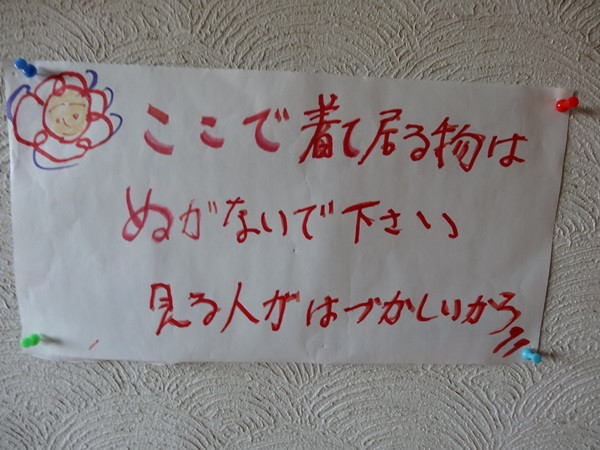 ここで着て居る物は
ぬがないで下さい
見る人がはづかしいから!!